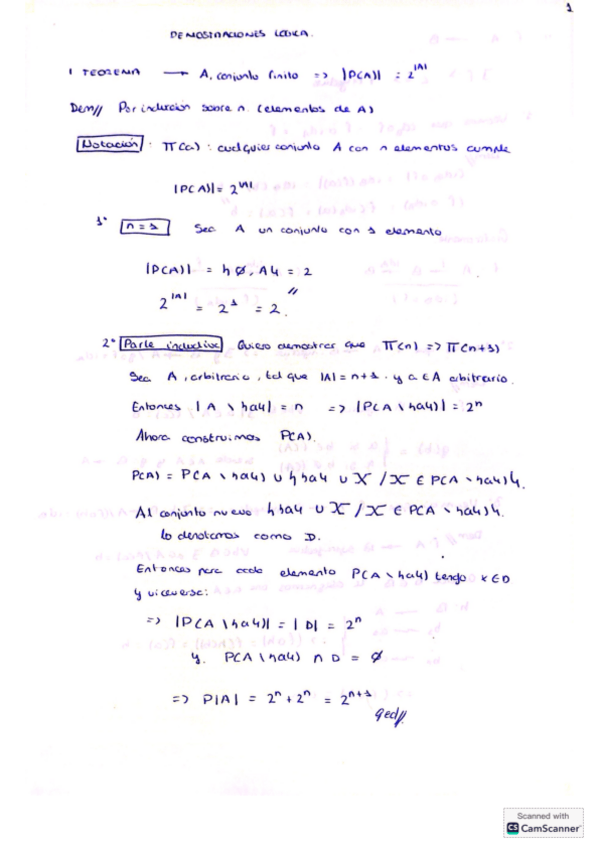 1
DEMOSTRACIONES LÓGICA.
1 TEOREMA → A, conjunto finito => |P(A)| = 2^|A|
Dem// Por inducción sobre n. (elementos de A)
Notación : Π(n) : cualquier conjunto A con n elementos cumple
|P(A)| = 2^|A|
1° n=1 Sea A un conjunto con 1 elemento
|P(A)| = {∅, A} = 2
2^|A| = 2^1 = 2. //
2° Parte inductiva Quiero demostrar que Π(n) => Π(n+1)
Sea A, arbitrario, tal que |A| = n+1. y a ∈ A arbitrario.
Entonces |A \ {a}| = n => |P(A \ {a})| = 2^n
Ahora construimos P(A).
P(A) = P(A \ {a}) ∪ {{a} ∪ X / X ∈ P(A \ {a})}.
Al conjunto nuevo {{a} ∪ X / X ∈ P(A \ {a})}.
lo denotamos como D.
Entonces para cada elemento P(A \ {a}) tengo x ∈ D
y viceversa:
=> |P(A \ {a})| = |D| = 2^n
y. P(A \ {a}) ∩ D = ∅
=> P|A| = 2^n + 2^n = 2^(n+1)
qed//.
Scanned with
CS CamScanner